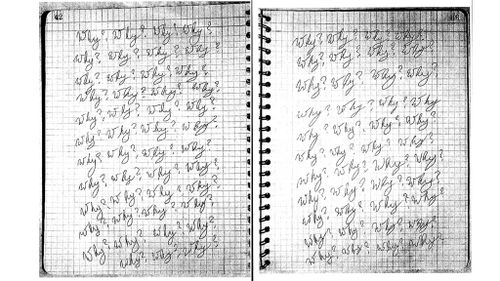 Why? Why? Why? Why?
Why? Why? Why? Why?
Why? Why? Why? Why?
Why? Why? Why? Why?
Why? Why? Why? Why?
Why? Why? Why? Why?
Why? Why? Why? Why?
Why? Why? Why? Why?
Why? Why? Why? Why?
Why? Why? Why? Why?
Why? Why? Why? Why?
Why? Why? Why?
Why? Why? Why? Why?
Why? Why? Why? Why?
Why? Why? Why? Why?
Why? Why? Why? Why
Why? Why? Why? Why?
Why? Why? Why? Why?
Why? Why? Why? Why?
Why? Why? Why? Why?
Why? Why? Why? Why?
Why? Why? Why? Why?
Why? Why? Why? Why?